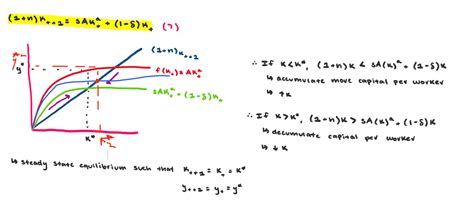 (1+n)K_{t+1} = SAK_t^α + (1-δ)K_t (7)
(1+n)K_{t+1}
f(K_t) = AK_t^α
SAK_t^α + (1-δ)K_t
y*
K*
∴ If K<K*, (1+n)K < SA(K)^α + (1-δ)K
↳ accumulate more capital per worker
↳ ↑K
∴ If K>K*, (1+n)K > SA(K)^α + (1-δ)K
↳ decumulate capital per worker
↳ ↓K
↳ steady state equilibrium such that K_{t+1} = K_t = K*
y_{t+1} = y_t = y*